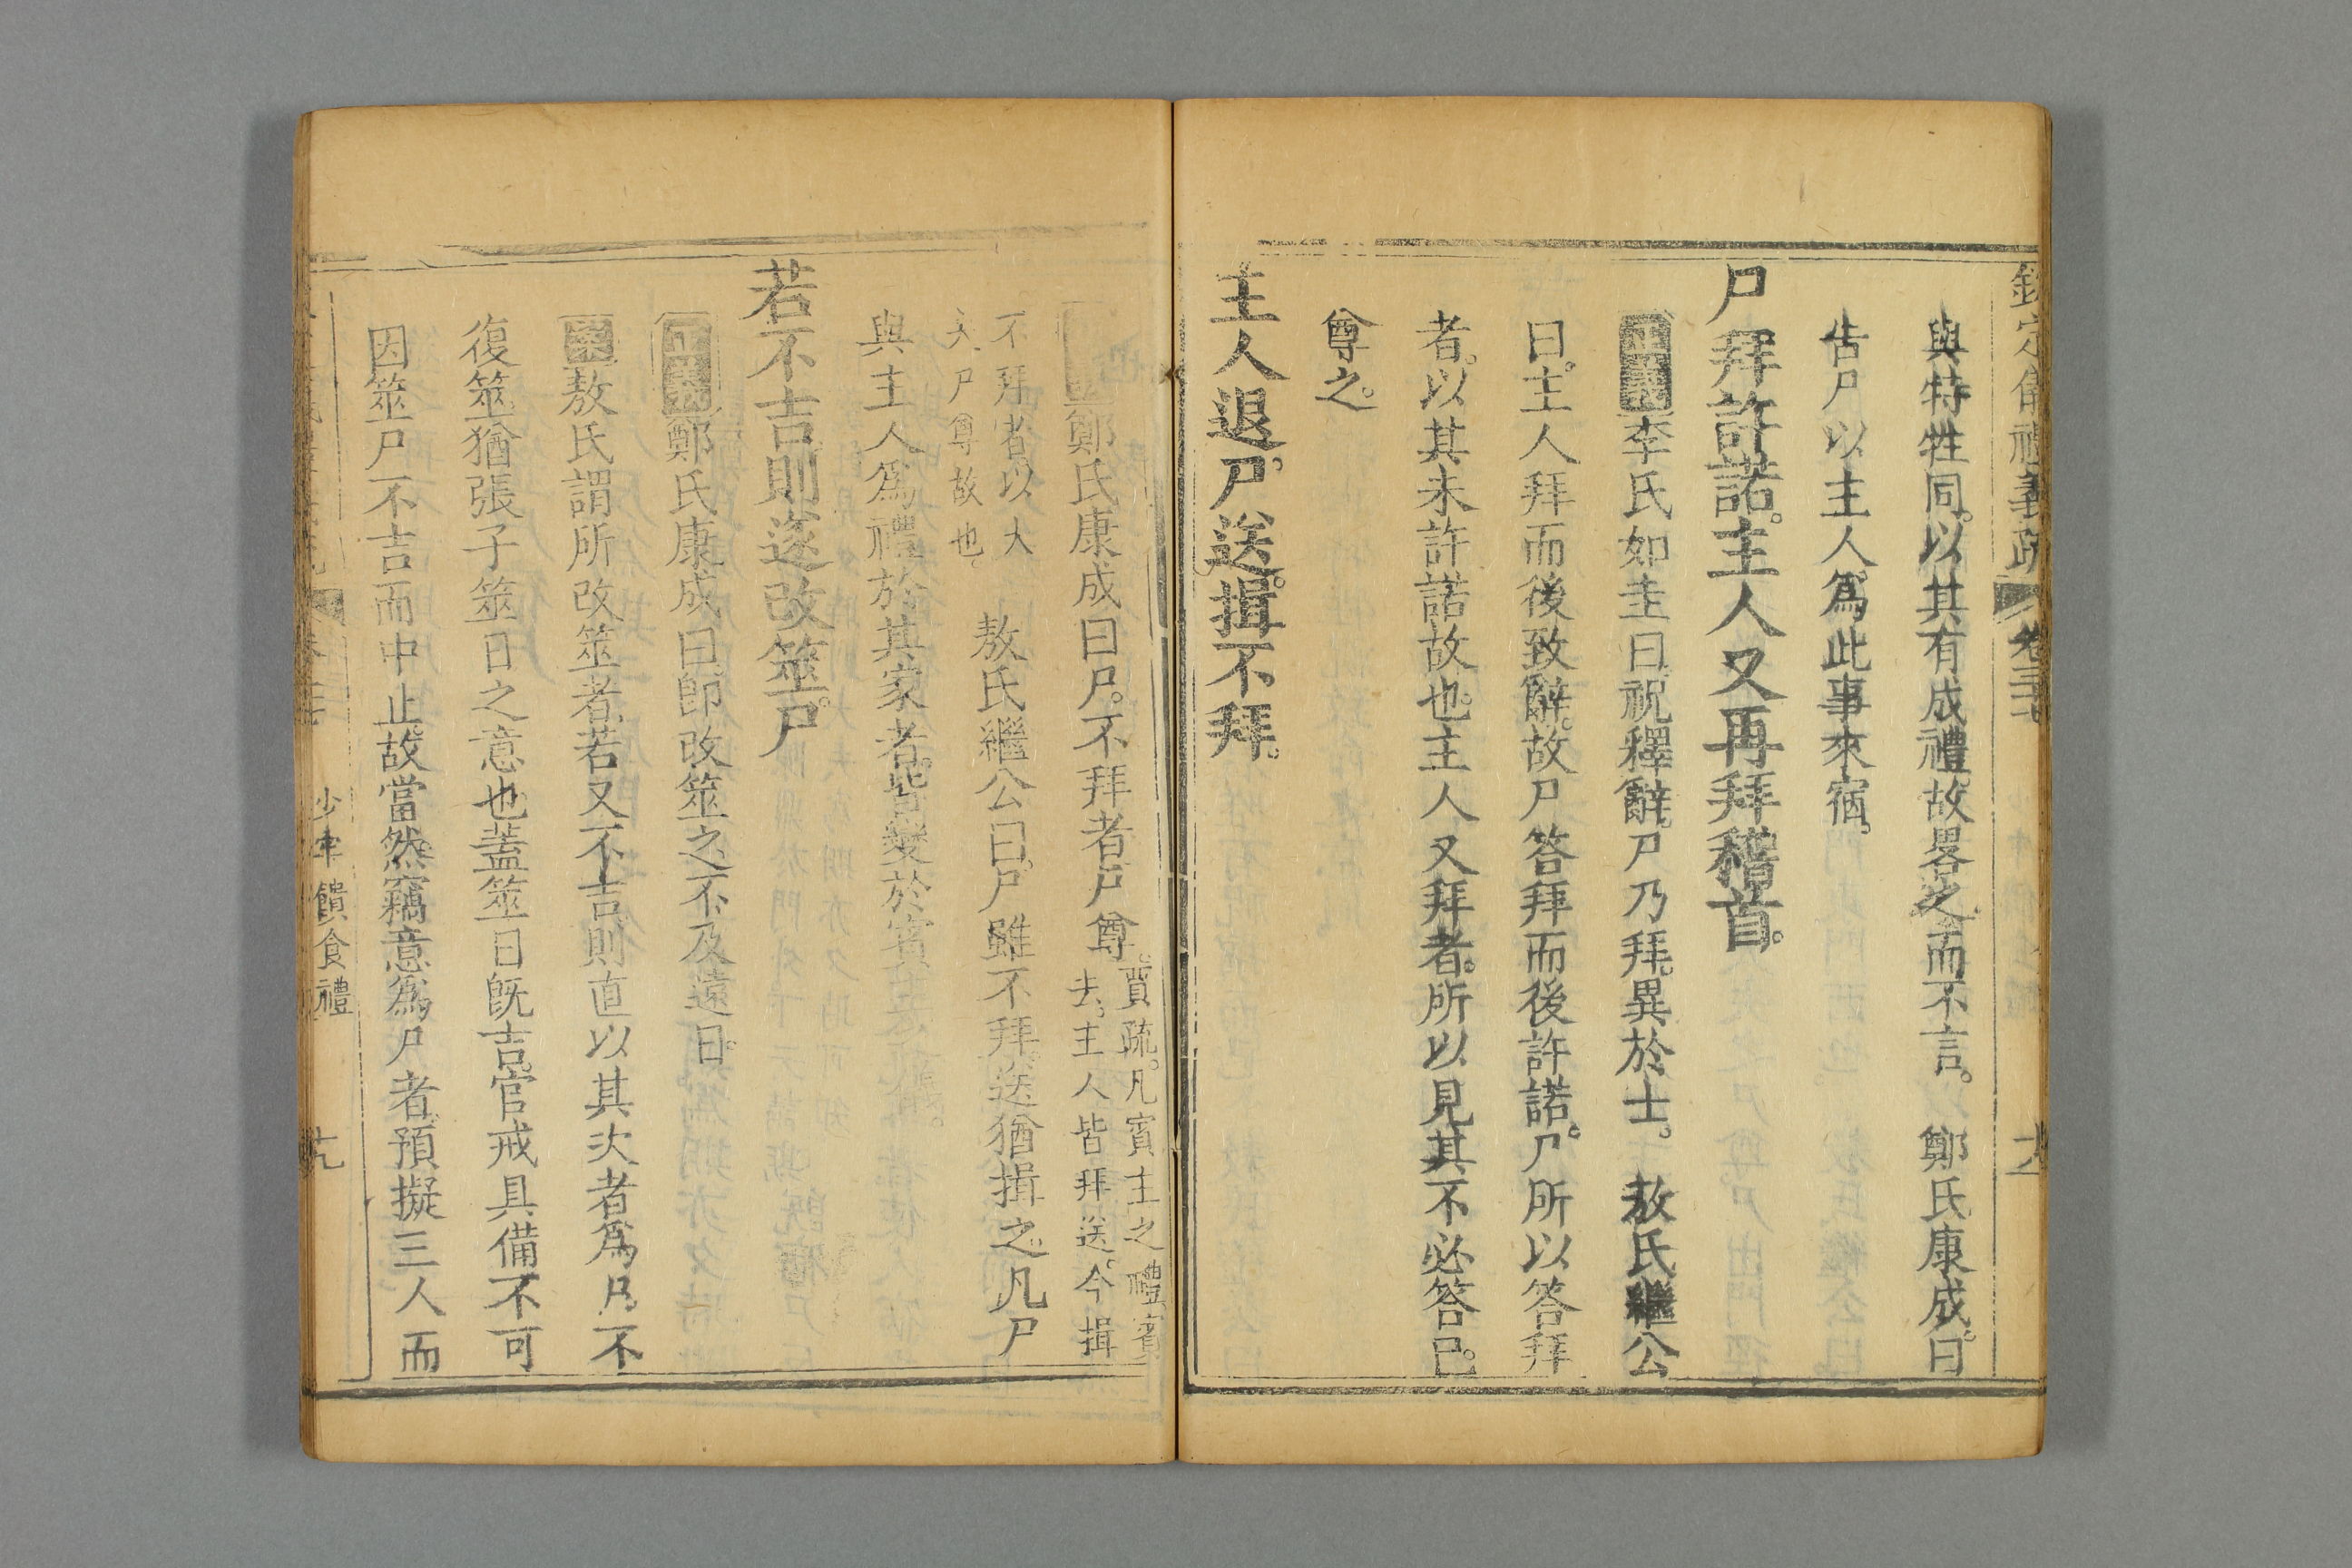 欽定儀禮義疏 卷三十七 十八
與特牲同以其有成禮故畧之而不言。 鄭氏康成曰
告尸以主人爲此事來宿。
尸拜許諾。主人又再拜稽首。
正義李氏如圭曰祝釋辭。尸乃拜。異於士。 敖氏繼公
曰。主人拜而後致辭。故尸答拜而後許諾。尸所以答拜
者。以其未許諾故也。主人又拜者。所以見其不必答已。
尊之。
主人退。尸送。揖不拜。
鄭氏康成曰尸。不拜者尸尊。賈疏。凡賓主之禮。賓
去。主人皆拜送。今揖
不拜者。以大
夫尸尊故也。 敖氏繼公曰。尸雖不拜送。猶揖之。凡尸
與主人爲禮於其家者。皆變於賓主
若不吉。則遂改筮尸。
正義鄭氏康成曰。卽改筮之。不及遠日。
案敖氏謂所改筮者。若又不吉。則直以其次者爲尸。不
復筮。猶張子筮日之意也。蓋筮日旣吉。官戒具備。不可
因筮尸不吉而中止。故當然。竊意爲尸者。預擬三人而
少牢饋食禮 十九